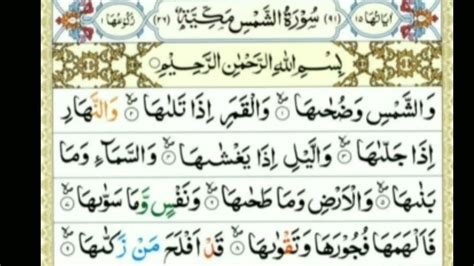 اٰیَاتُهَا ١٥ (٩١) سُوْرَةُ الشَّمْسِ مَكِّيَّةٌ (٢٦) رُكُوْعُهَا ١
بِسْمِ اللهِ الرَّحْمٰنِ الرَّحِيْمِ
وَالشَّمْسِ وَضُحٰىهَا ١ وَالْقَمَرِ اِذَا تَلٰىهَا ٢ وَالنَّهَارِ
اِذَا جَلّٰىهَا ٣ وَالَّيْلِ اِذَا يَغْشٰىهَا ٤ وَالسَّمَآءِ وَمَا
بَنٰىهَا ٥ وَالْاَرْضِ وَمَا طَحٰىهَا ٦ وَنَفْسٍ وَّمَا سَوّٰىهَا ٧
فَاَلْهَمَهَا فُجُوْرَهَا وَتَقْوٰىهَا ٨ قَدْ اَفْلَحَ مَنْ زَكّٰىهَا ٩